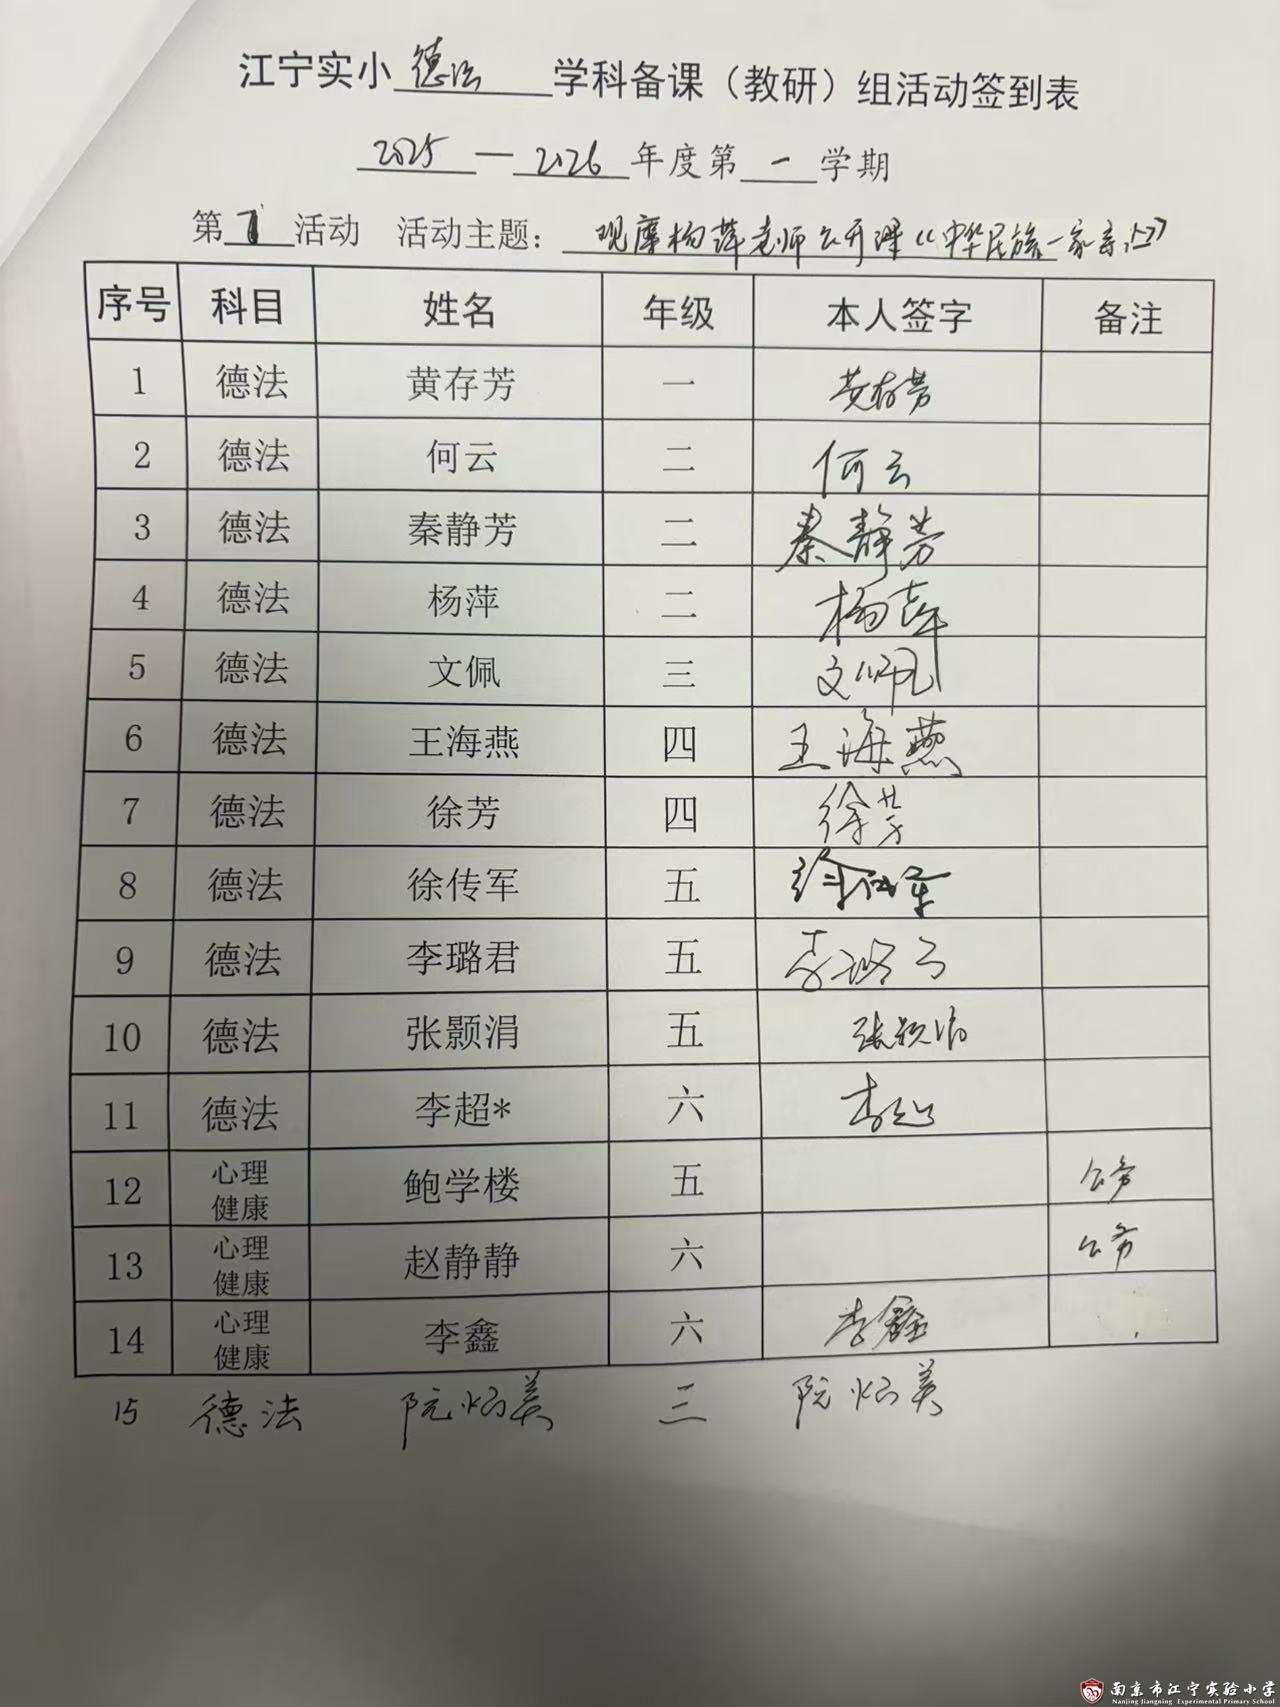 江宁实小 德法 学科备课（教研）组活动签到表
2025 — 2026 年度第 一 学期
第 活动 活动主题： 观摩杨萍老师公开课《中华民族一家亲》
序号 科目 姓名 年级 本人签字 备注
1 德法 黄存芳 一 黄存芳
2 德法 何云 二 何云
3 德法 秦静芳 二 秦静芳
4 德法 杨萍 二 杨萍
5 德法 文佩 三 文佩
6 德法 王海燕 四 王海燕
7 德法 徐芳 四 徐芳
8 德法 徐传军 五 徐传军
9 德法 李璐君 五 李璐君
10 德法 张颢涓 五 张颢涓
11 德法 李超* 六 李超
12 心理健康 鲍学楼 五 公务
13 心理健康 赵静静 六 公务
14 心理健康 李鑫 六 李鑫
15 德法 阮炳美 三 阮炳美
南京市江宁实验小学
Nanjing Jiangning Experimental Primary School